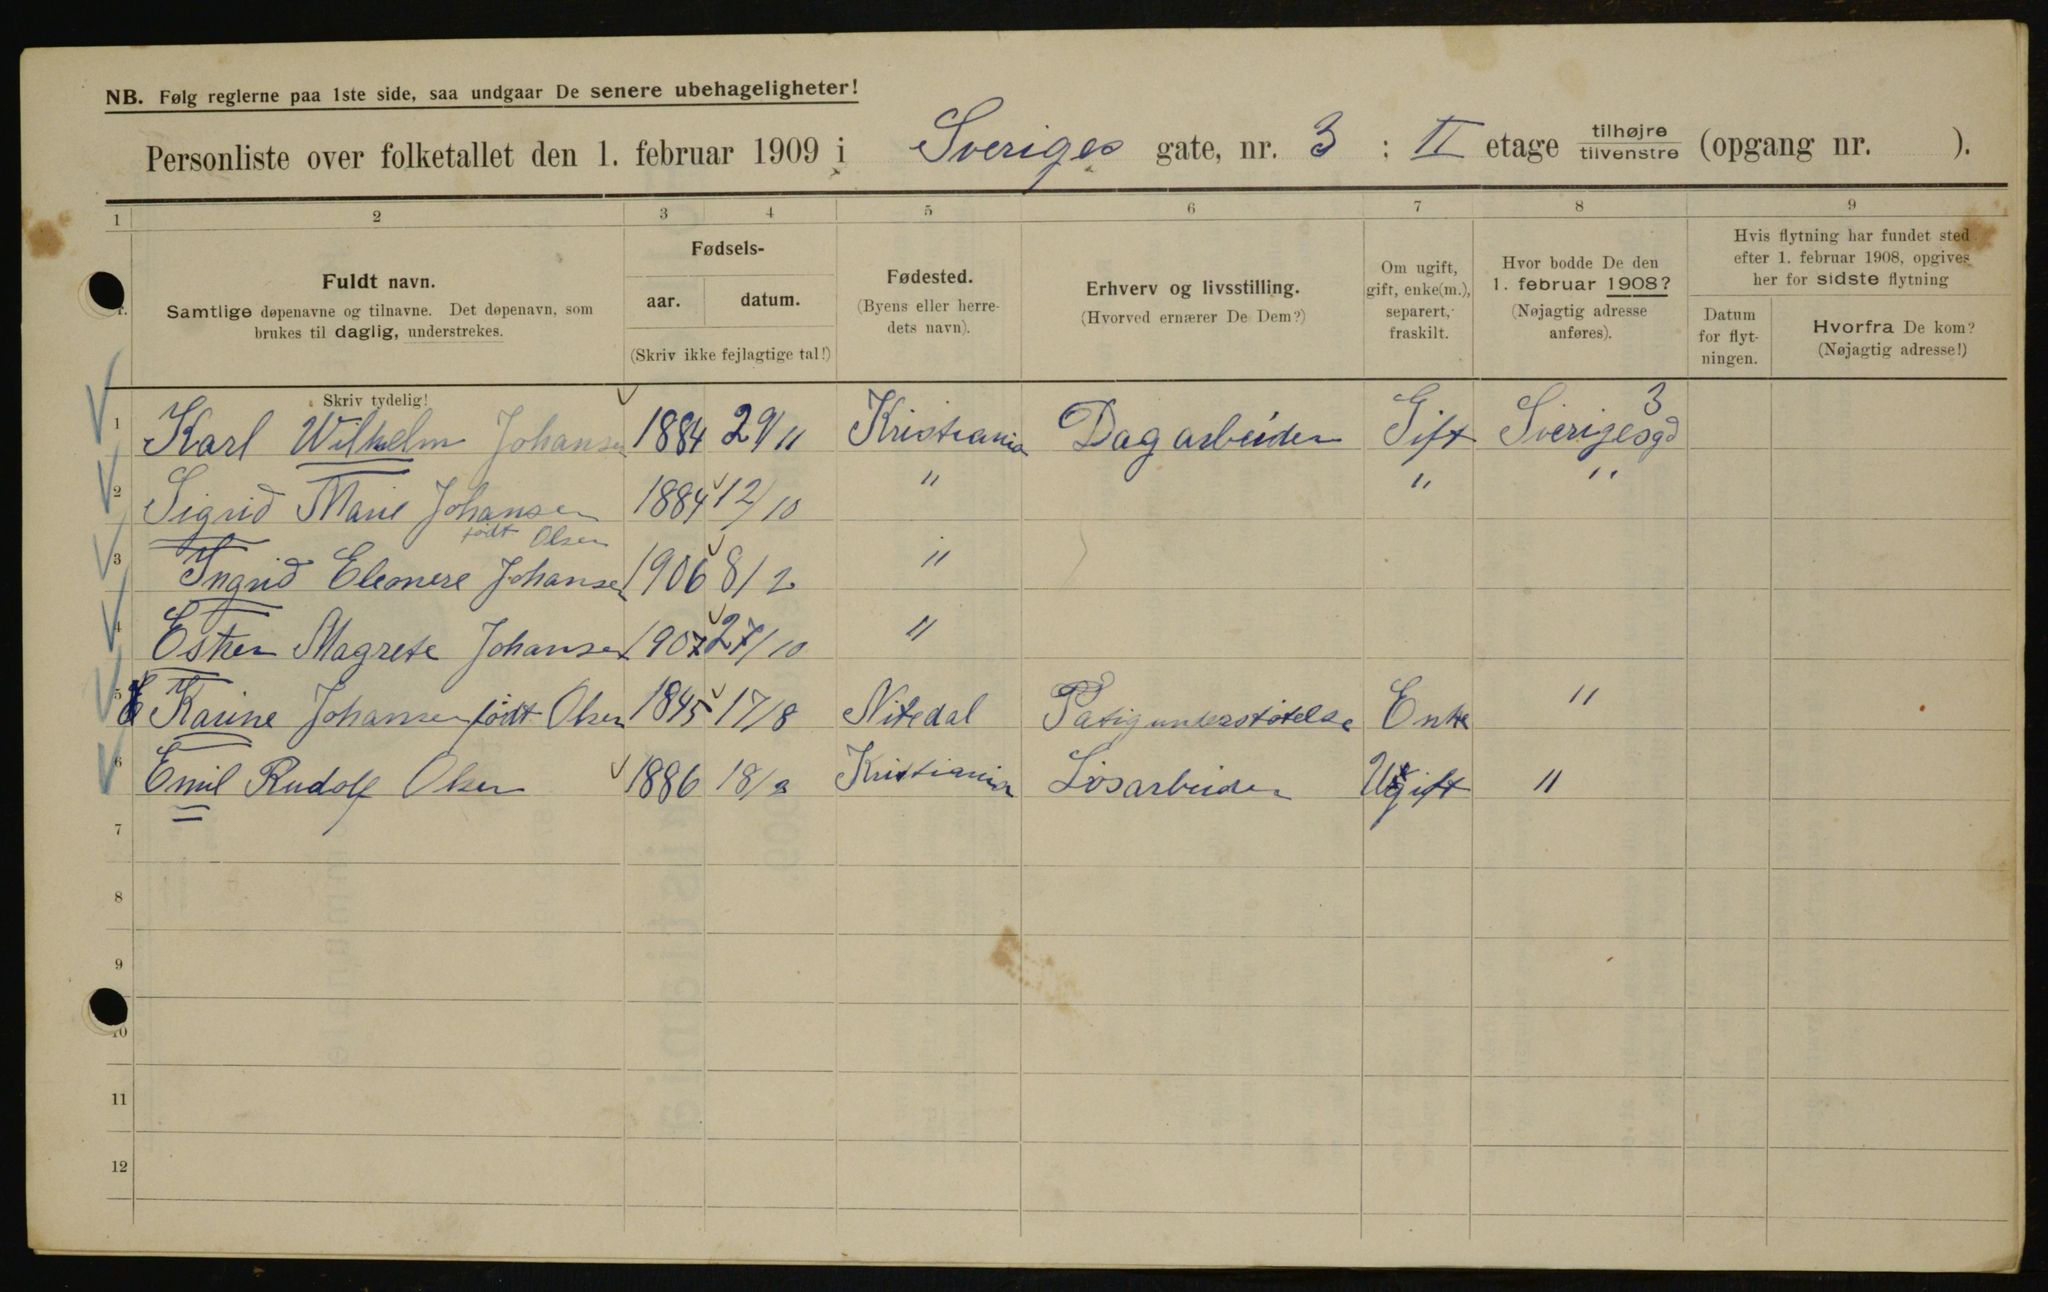 NB. Følg reglerne paa 1ste side, saa undgaar De senere ubehageligheter!
Personliste over folketallet den 1. februar 1909 i Sveriges gate, nr. 3 : II etage tilhøjre tilvenstre (opgang nr. ).
1 2 3 4 5 6 7 8 9
Fuldt navn.
Samtlige døpenavne og tilnavne. Det døpenavn, som
brukes til daglig, understrekes.
Fødsels-
aar. datum.
(Skriv ikke fejlagtige tal!)
Fødested.
(Byens eller herre-
dets navn).
Erhverv og livsstilling.
(Hvorved ernærer De Dem?)
Om ugift,
gift, enke(m.),
separert,
fraskilt.
Hvor bodde De den
1. februar 1908?
(Nøjagtig adresse
anføres).
Hvis flytning har fundet sted
efter 1. februar 1908, opgives
her for sidste flytning
Datum
for flyt-
ningen.
Hvorfra De kom?
(Nøjagtig adresse!)
Skriv tydelig!
1 Karl Wilhelm Johansen 1884 29/11 Kristiania Dagarbeider Gift Sverigesgd 3
2 Sigrid Marie Johansen født Olsen 1884 12/10 " " "
3 Ingrid Eleonere Johansen 1906 8/2 "
4 Esther Magrete Johansen 1907 27/10 "
5 Karine Johansen født Olsen 1845 17/8 Nitedal Fatigunderstøtelse Enke "
6 Emil Rudolf Olsen 1886 18/2 Kristiania Løsarbeider Ugift "
7
8
9
10
11
12